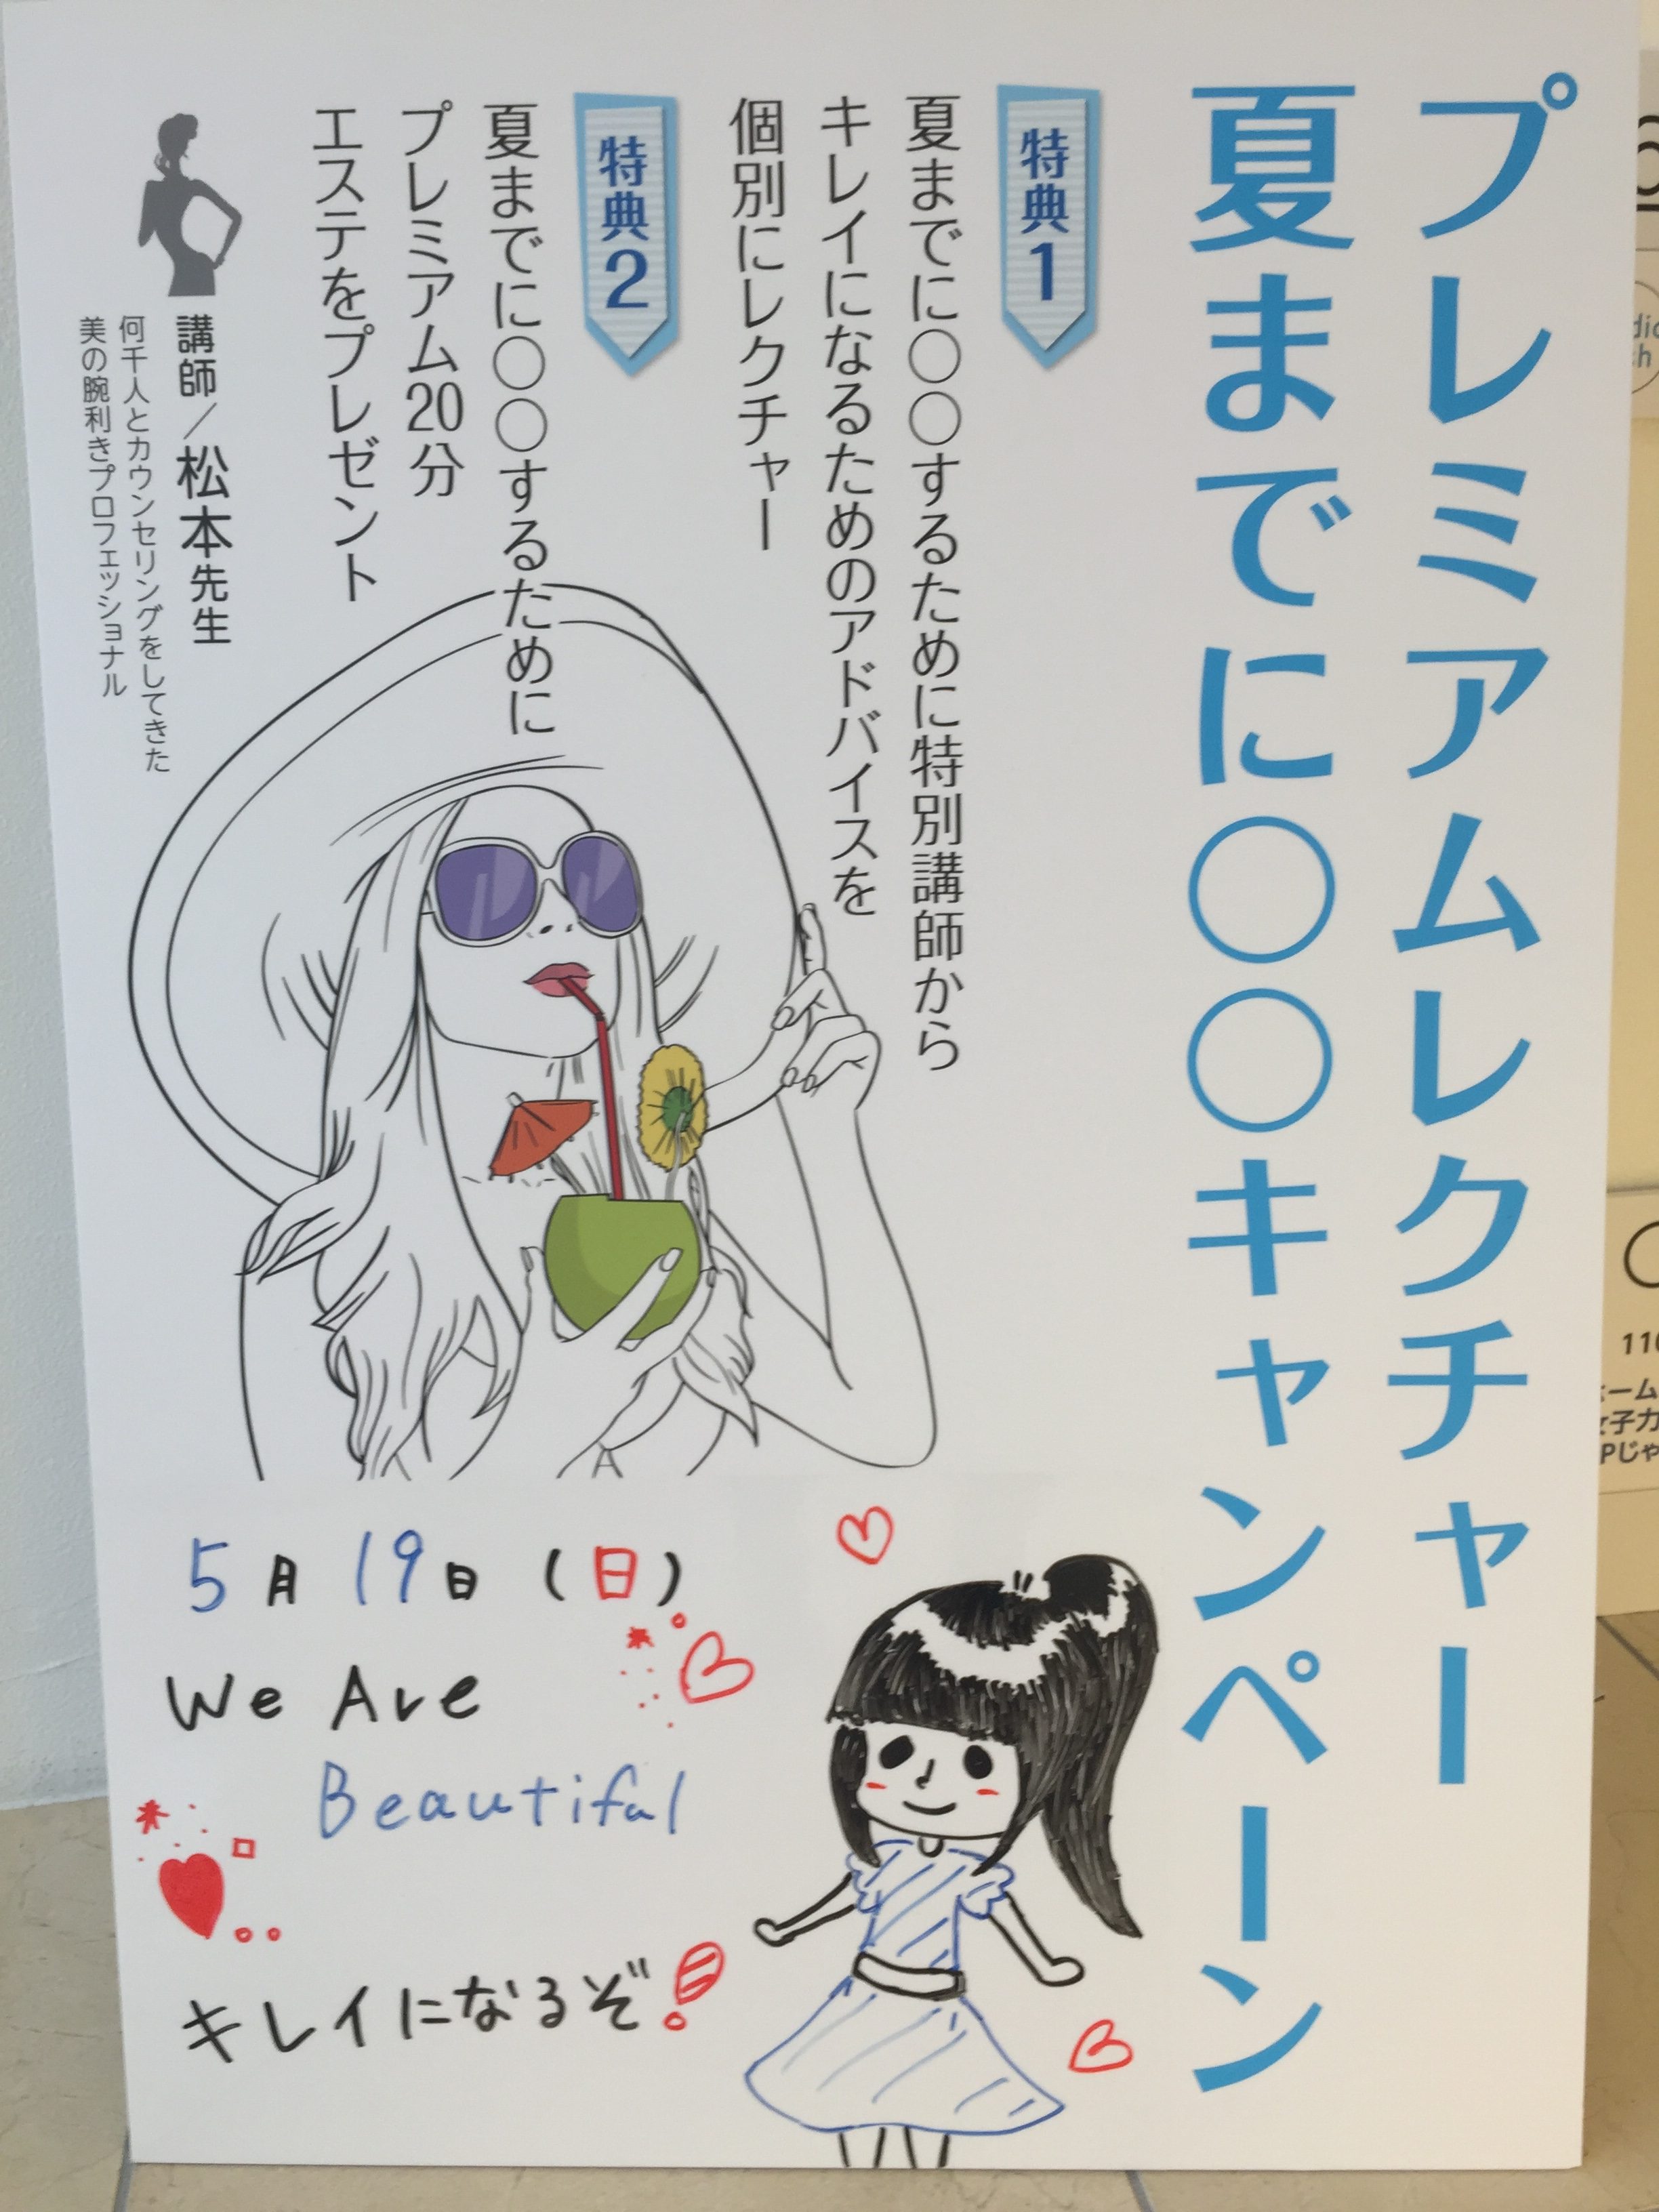 プレミアムレクチャー
夏までに〇〇キャンペーン
特典1
夏までに〇〇するために特別講師から
キレイになるためのアドバイスを
個別にレクチャー
特典2
夏までに〇〇するために
プレミアム20分
エステをプレゼント
講師／松本先生
何千人とカウンセリングをしてきた
美の腕利きプロフェッショナル
5月19日（日）
We Are
Beautiful
キレイになるぞ!